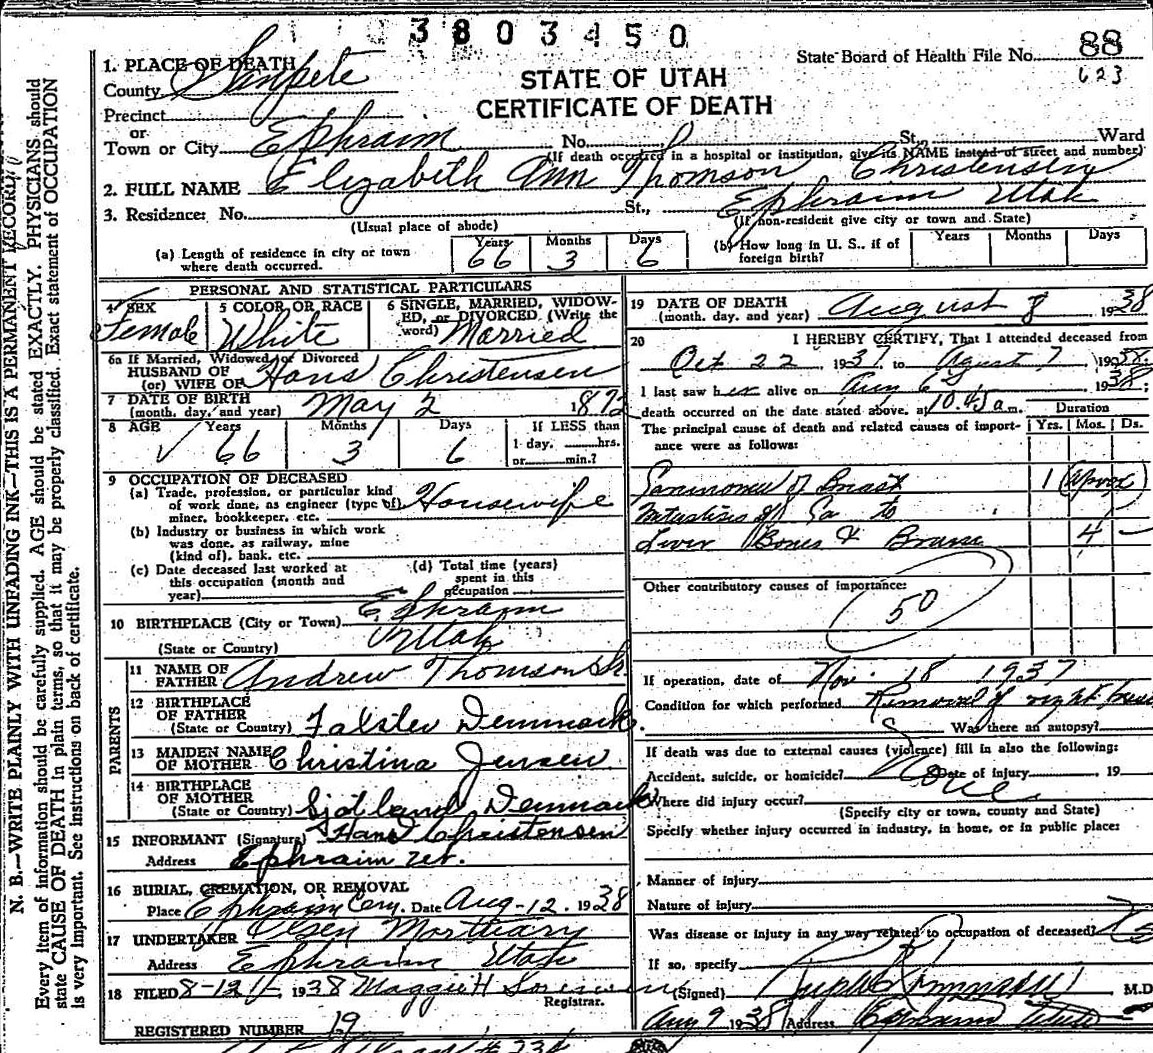 3803450
State Board of Health File No. 88
623
1. PLACE OF DEATH
County Sanpete
STATE OF UTAH
CERTIFICATE OF DEATH
Precinct
or
Town or City Ephraim No. St. Ward
(If death occurred in a hospital or institution, give its NAME instead of street and number)
2. FULL NAME Elizabeth Ann Thomson Christensen
3. Residence: No. St., Ephraim Utah
(Usual place of abode) (If non-resident give city or town and State)
(a) Length of residence in city or town where death occurred. Years 66 Months 3 Days 6
(b) How long in U. S., if of foreign birth? Years Months Days
PERSONAL AND STATISTICAL PARTICULARS
4 SEX Female
5 COLOR OR RACE White
6 SINGLE, MARRIED, WIDOWED, or DIVORCED. (Write the word) Married
6a If Married, Widowed or Divorced
HUSBAND OF
(or) WIFE OF Hans Christensen
7 DATE OF BIRTH
(month, day, and year) May 2 1872
8 AGE Years 66 Months 3 Days 6 If LESS than
1 day, hrs.
or min.?
9 OCCUPATION OF DECEASED
(a) Trade, profession, or particular kind
of work done, as engineer (type of) Housewife
miner, bookkeeper, etc.
(b) Industry or business in which work
was done, as railway, mine
(kind of), bank, etc.
(c) Date deceased last worked at
this occupation (month and
year)
(d) Total time (years)
spent in this
occupation
10 BIRTHPLACE (City or Town) Ephraim
(State or Country) Utah
PARENTS
11 NAME OF
FATHER Andrew Thomson Sr.
12 BIRTHPLACE
OF FATHER
(State or Country) Falster Denmark
13 MAIDEN NAME
OF MOTHER Christina Jensen
14 BIRTHPLACE
OF MOTHER
(State or Country) Sjdland Denmark
15 INFORMANT (Signature) Hans Christensen
Address Ephraim Ut.
16 BURIAL, CREMATION, OR REMOVAL
Place Ephraim Cem. Date Aug-12. 1938
17 UNDERTAKER Olsen Mortuary
Address Ephraim Utah
18 FILED 8-12, 1938 Maggie H Sorensen
Registrar.
REGISTERED NUMBER 19
19 DATE OF DEATH
(month, day, and year) August 8 1938
20 I HEREBY CERTIFY, That I attended deceased from
Oct 22 1937 to August 7, 1938.
I last saw her alive on Aug 6 1938;
death occurred on the date stated above, at 10.45 a m.
The principal cause of death and related causes of importance were as follows:
Duration
Yrs. Mos. Ds.
of Breast 1 (Aprox)
Ca to
Liver Bones & 4 -
Other contributory causes of importance:
50
If operation, date of Nov. 18 1937
Condition for which performed Removal of right
Was there an autopsy?
If death was due to external causes (violence) fill in also the following:
Accident, suicide, or homicide? None Date of injury 19
Where did injury occur?
(Specify city or town, county and State)
Specify whether injury occurred in industry, in home, or in public place:
Manner of injury
Nature of injury
Was disease or injury in any way related to occupation of deceased?
If so, specify
(Signed) M.D
Aug 9 1938 Address Ephraim Utah
N. B.—WRITE PLAINLY WITH UNFADING INK—THIS IS A PERMANENT RECORD
Every item of information should be carefully supplied. AGE should be stated EXACTLY. PHYSICIANS should
state CAUSE OF DEATH in plain terms, so that it may be properly classified. Exact statement of OCCUPATION
is very important. See instructions on back of certificate.